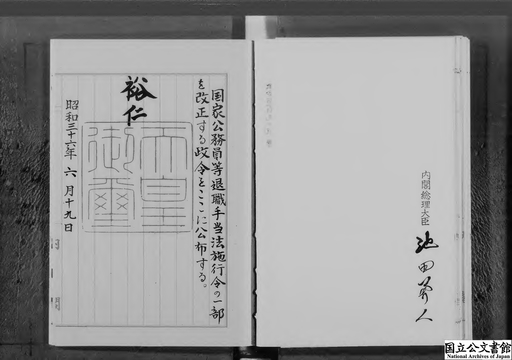 国家公務員等退職手当法施行令の一部
を改正する政令をここに公布する。
裕仁
天皇
御璽
昭和三十六年六月十九日
内閣総理大臣
池田勇人
国立公文書館
National Archives of Japan